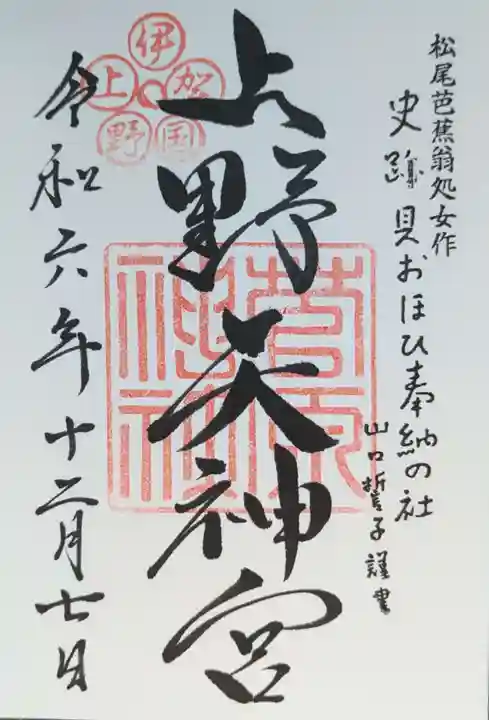 松尾芭蕉翁処女作
史蹟貝おほひ奉納の社
山口誓子謹書
上野天神宮
伊賀国上野
令和六年十二月七日